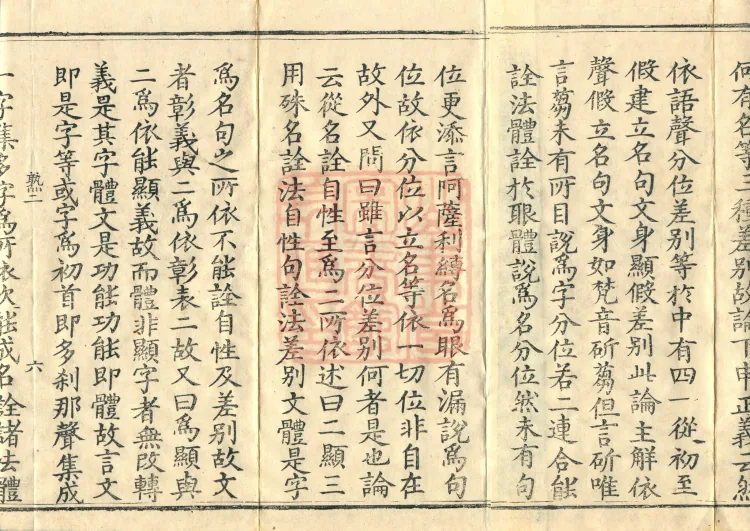 何有名等三種差別故論下申正義云然
依語聲分位差別等於中有四一從初至
假建立名句文身顯假差別此論主解依
聲假立名句文身如梵音斫蒭但言斫唯
言蒭未有所目說為字分位若二連合能
詮法體詮於眼體說為名分位然未有句
位更添言阿薩利縛名為眼有漏說為句
位故依分位以立名等依一切位非自在
故外又問曰雖言分位差別何者是也論
云從名詮自性至為二所依述曰二顯三
用殊名詮法自性句詮法差別文體是字
為名句之所依不能詮自性及差別故文
者彰義與二為依彰表二故又曰為顯與
二為依能顯義故而體非顯字者無改轉
義是其字體文是功能功能即體故言文
即是字等或字為初首即多剎那聲集成
𭓕二 六
一字集多字為所依次能成名詮諸法體